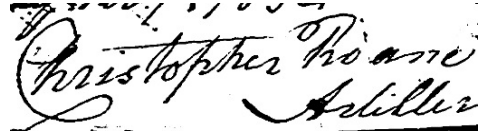 Christopher Roane
Artiller